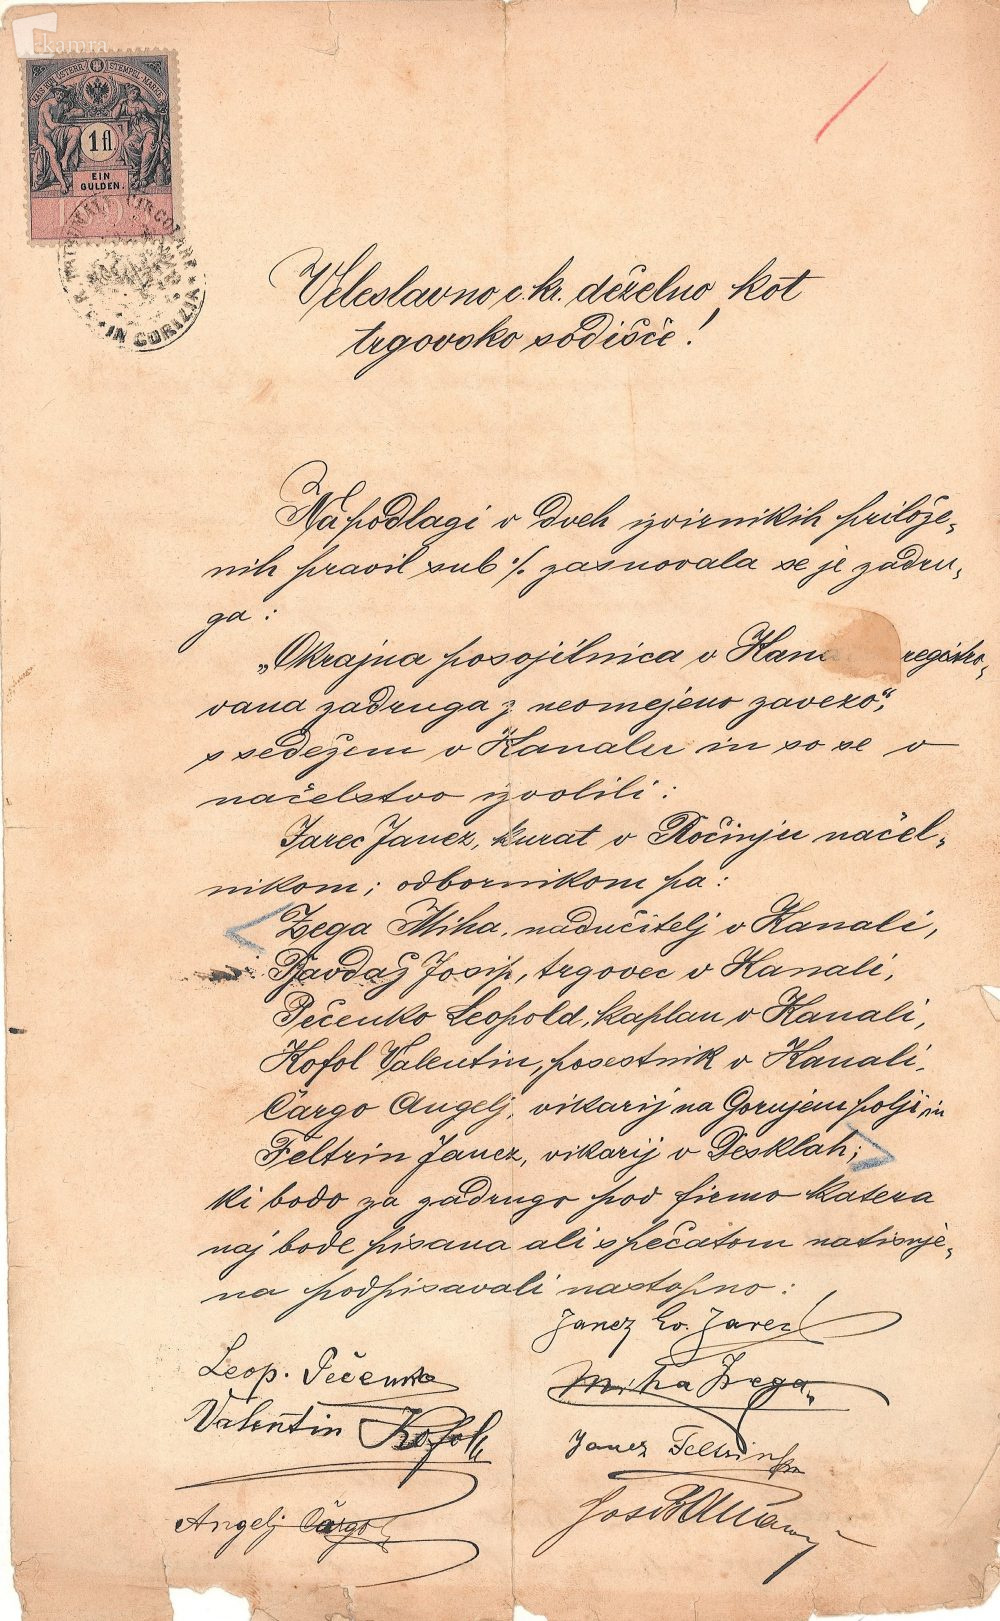 kamra
KAIS. KÖN. ÖSTERR. STEMPEL MARKE
1 fl
EIN
GULDEN.
1898
TRIBUNALE CIRCOLARE
IN GORIZIA
Veleslavno c. kr. deželno kot
trgovsko sodišče!
Na podlagi v dveh izvirnikih prilože„
nih pravil sub ·/. zasnovala se je zadru„
ga :
„Okrajna posojilnica v Kana registro„
vana zadruga z neomejeno zavezo“,
s sedežem v Kanalu in so se v
načelstvo izvolili :
Jarec Janez, kurat v Ročinju načel„
nikom ; odbornikom pa :
Zega Miha, nadučitelj v Kanali,
Bavdaž Josip, trgovec v Kanali,
Pečenko Leopold, kaplan v Kanali,
Kofol Valentin, posestnik v Kanali,
Čargo Angelj, vikarij na Gorujem polji, in
Feltrin Janez, vikarij v Desklah ;
ki bodo za zadrugo pod firmo katera
naj bode pisana ali s pečatom natisnje„
na podpisavali nastopno :
Janez Ev. Jarec
Leop. Pečenko
Miha Zega
Valentin Kofol
Janez Feltrin
Angelj Čargo